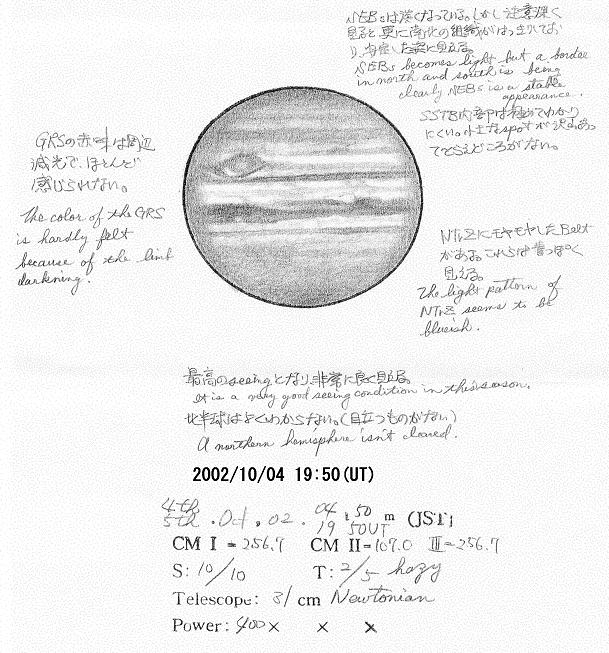 NEBsは淡くなっている。しかし注意深く
見ると更に南北の組織がはっきりしてお
り、安定した姿に見える。
NEBs becomes light but a border
in north and south is being
clearly NEBs is a stable
appearance.
SSTB内部は極めてわかり
にくい。小さなspotが沢山あっ
てとらえどころがない。
GRSの赤味は周辺
減光で、ほとんど
感じられない。
The color of the GRS
is hardly felt
because of the limb
darkning.
NTrZにモヤモヤしたBelt
がある。これらは青っぽく
見える。
The light pattern of
NTrZ seems to be
blueish.
最高のseeingとなり、非常に良く見える。
It is a very good seeing condition in this season.
北半球はよくわからない。(目立つものがない)
A northern hemisphere isn't cleared.
2002/10/04 19:50(UT)
4th
5th . Oct . 02 . 04 : 50 m (JST)
19 50UT
CM I = 256.7 CM II = 107.0 III = 256.7
S: 10/10 T: 2/5 hazy
Telescope: 31 cm Newtonian
Power: 400× × ×